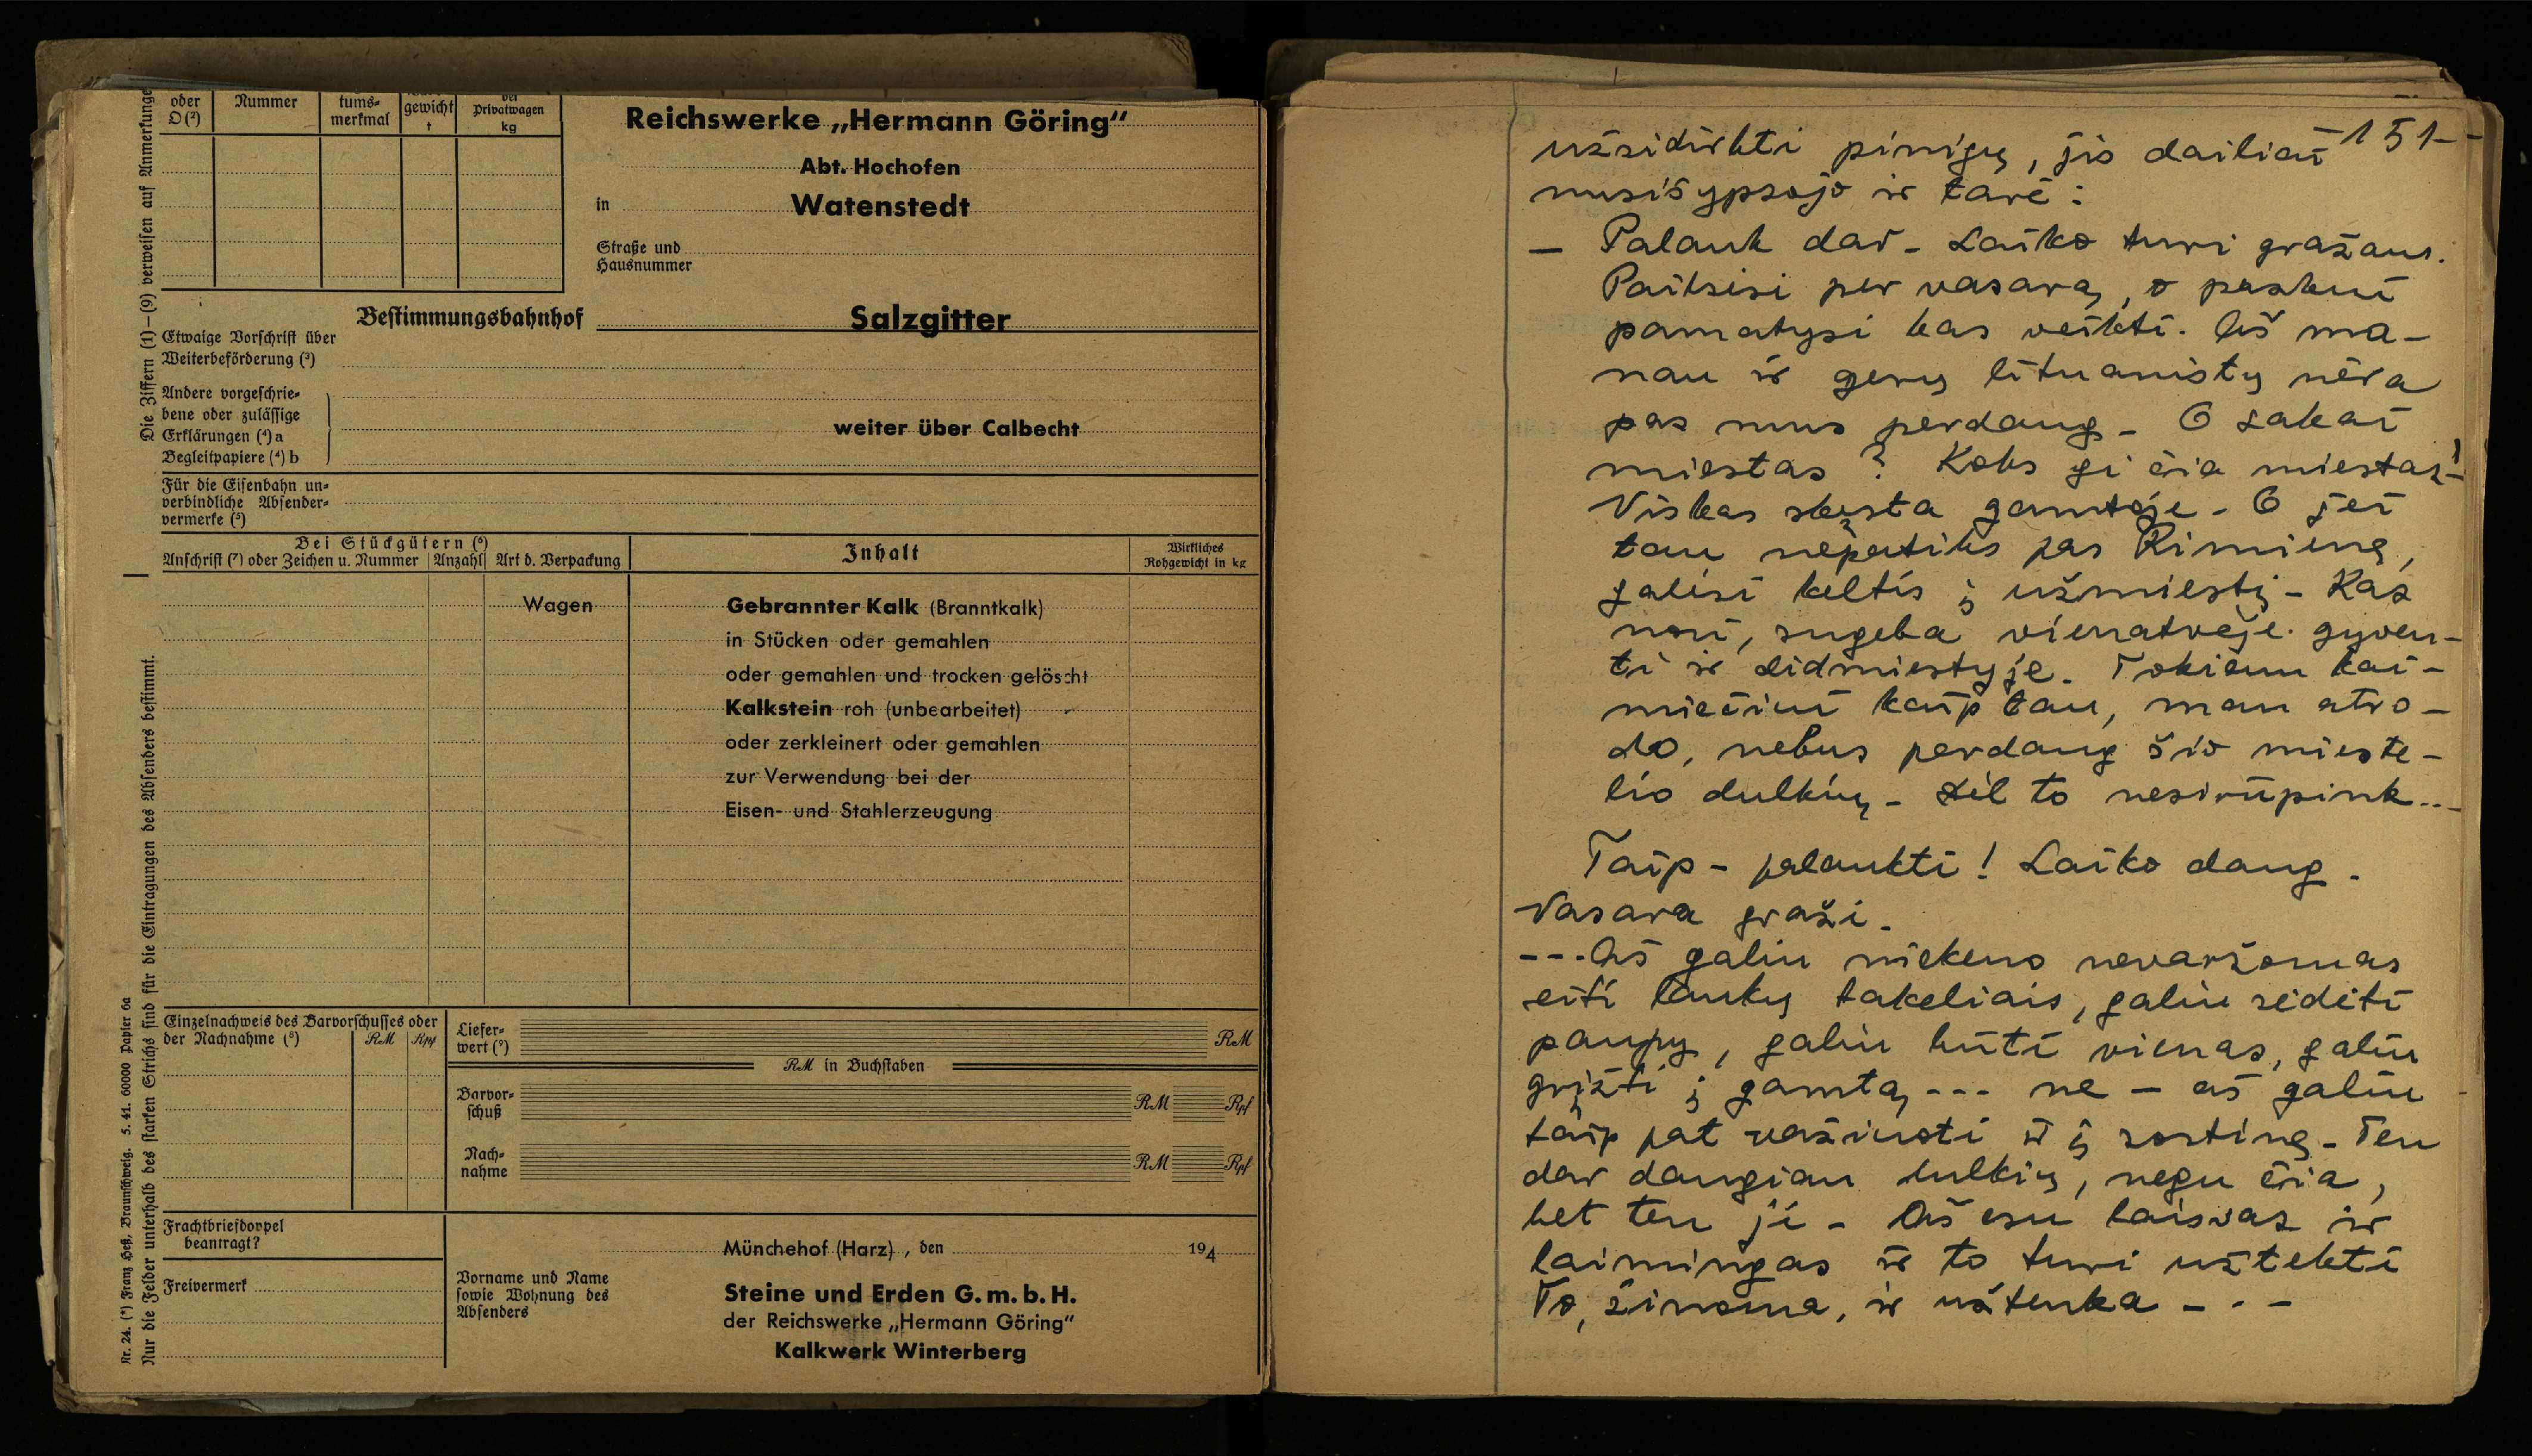 oder
O (²)
Nummer
tums-
merkmal
gewicht
t
bei
Privatwagen
kg
Reichswerke „Hermann Göring“
Abt. Hochofen
in
Watenstedt
Straße und
Hausnummer
Bestimmungsbahnhof
Salzgitter
Etwaige Vorschrift über
Weiterbeförderung (³)
Andere vorgeschrie-
bene oder zulässige
Erklärungen (⁴) a
Begleitpapiere (⁴) b
weiter über Calbecht
Für die Eisenbahn un-
verbindliche Absender-
vermerke (⁵)
Bei Stückgütern (⁶)
Anschrift (⁷) oder Zeichen u. Nummer
Anzahl
Art d. Verpackung
Inhalt
Wirkliches
Rohgewicht in kg
Wagen
Gebrannter Kalk (Branntkalk)
in Stücken oder gemahlen
oder gemahlen und trocken gelöscht
Kalkstein roh (unbearbeitet)
oder zerkleinert oder gemahlen
zur Verwendung bei der
Eisen- und Stahlerzeugung
Einzelnachweis des Barvorschusses oder
der Nachnahme (⁸)
RM
Rpf
Liefer-
wert (⁹)
RM
RM in Buchstaben
Barvor-
schuß
RM
Rpf
Nach-
nahme
RM
Rpf
Frachtbriefdoppel
beantragt?
Freivermerk
Münchehof (Harz) , den
194
Vorname und Name
sowie Wohnung des
Absenders
Steine und Erden G. m. b. H.
der Reichswerke „Hermann Göring“
Kalkwerk Winterberg
Die Ziffern (1)—(9) verweisen auf Anmerkunge
Nur die Felder unterhalb des starken Strichs sind für die Eintragungen des Absenders bestimmt.
Nr. 24. (*) Franz Heß, Braunschweig. 5. 41. 60000 Papier 6a
-151-
užsidirbti pinigų, jis dailiai
nusišypsojo ir tarė:
— Palauk dar. Laiko turi gražaus.
Pailsėsi per vasarą, o paskui
pamatysi kas veikti. Aš ma-
nau ir gerų lituanistų nėra
pas mus perdaug. O sakai
miestas? Koks gi čia miestas!
Viskas skęsta gamtoje. O jei
tau nepatiks pas Rimienę,
galėsi keltis į užmiestį. Kas
nori, sugeba vienatvėje gyven-
ti ir didmiestyje. Tokiam kai-
miečiui kaip tau, man atro-
do, nebus perdaug šio mieste-
lio dulkių. Dėl to nesirūpink...
Taip - palaukti! Laiko daug.
Vasara graži.
---Aš galiu niekeno nevaržomas
eiti laukų takeliais, galiu sėdėti
paupy, galiu būti vienas, galiu
grįžti į gamtą --- ne — aš galiu
taip pat važiuoti ir į sostinę. Ten
dar daugiau dulkių, negu čia,
bet ten ji. Aš esu laisvas ir
laimingas ir to turi užtekti
To, žinoma, ir užtenka - - -